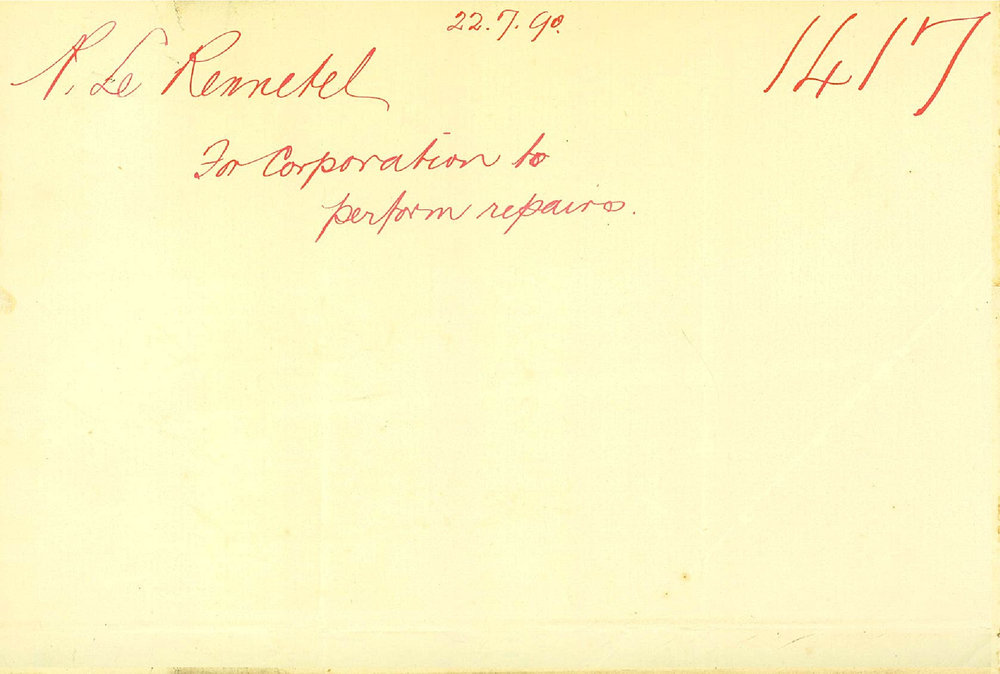 22.7.90.
P. Le Rennetel
1417
For Corporation to
perform repairs.